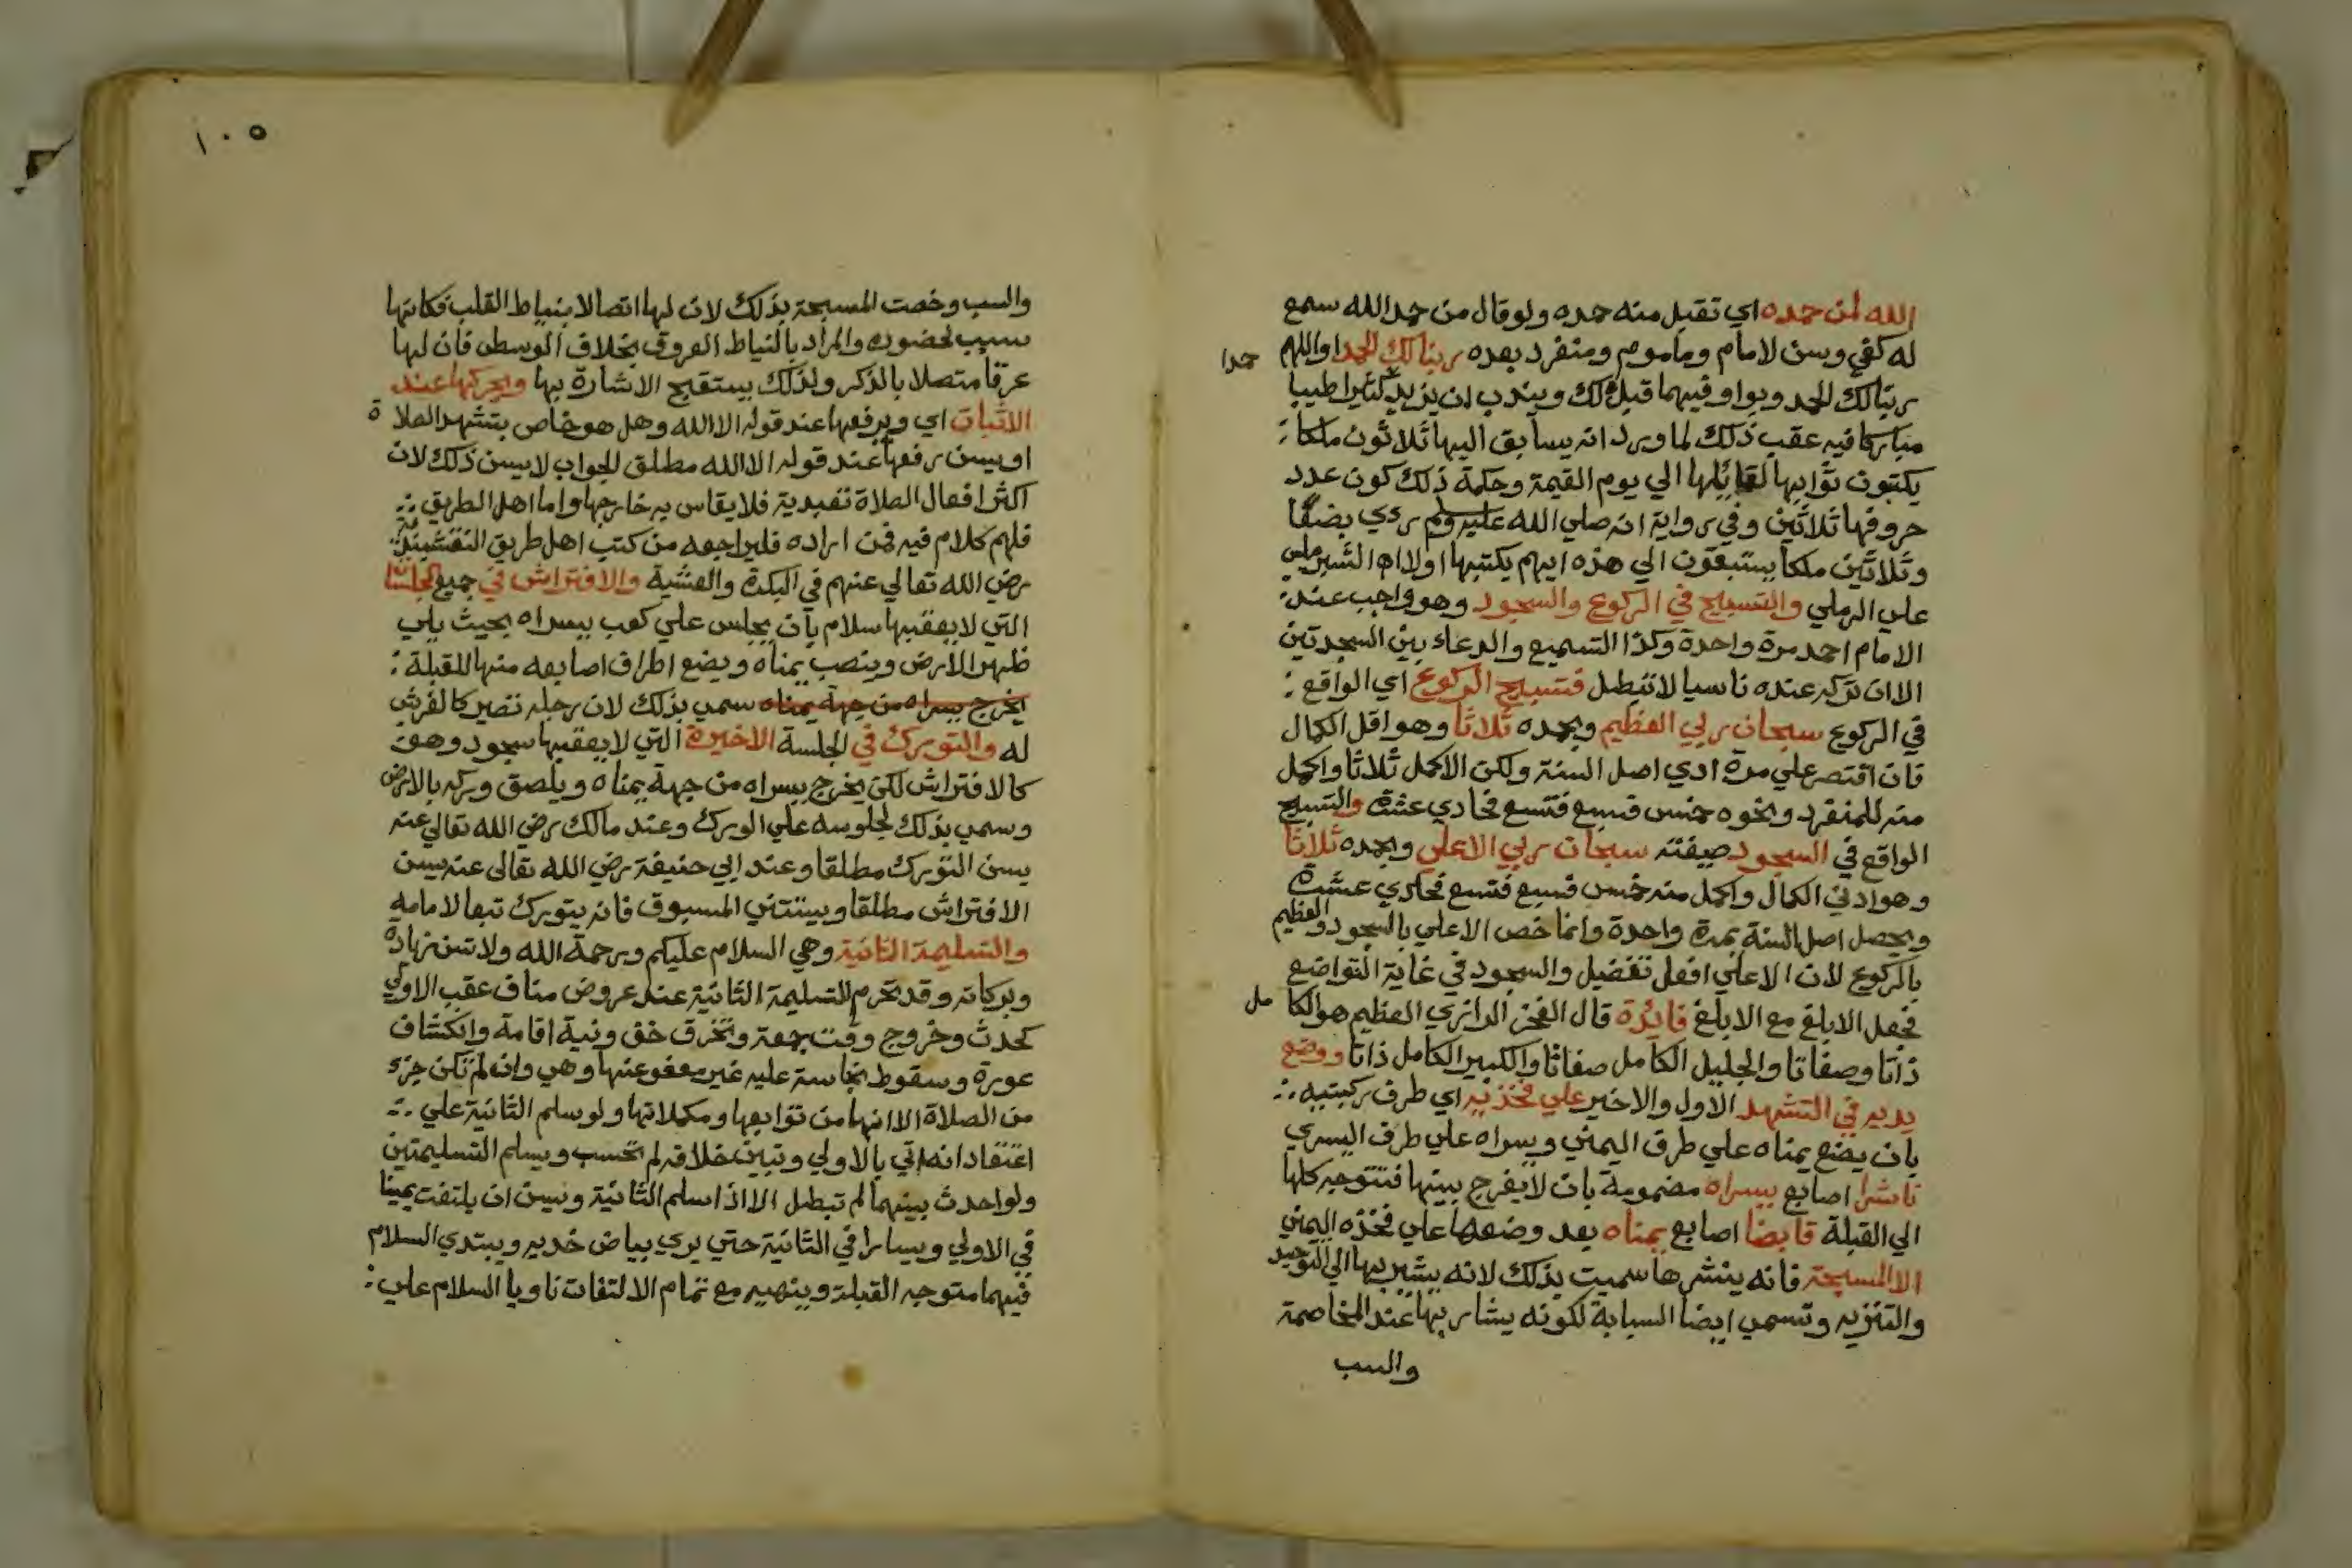 الله لمن حمده اي تقبل منه حمده ولو قال من حمد الله سمع
له كفي وسن لامام وماموم ومنفرد بعده ربنا لك الحمد او اللهم
ربنا لك الحمد وبواو فيهما قبل لك ويندب ان يزيد كثيرا طيبا
حمدا
مباركا فيه عقب ذلك لما ورد انه يسابق اليها ثلاثون ملكا
يكتبون ثوابها لقايلها الي يوم القيمة وحكمة ذلك كون عدد
حروفها ثلاثين وفي رواية انه صلي الله عليه وسلم ري بضعا
وثلاثين ملكا يستبقون الي هذه ايهم يكتبها اولا اه الشبراملسي
علي الرملي والتسبيح في الركوع والسجود وهو واجب عند
الامام احمد مرة واحدة وكذا التسميع والدعاء بين السجدتين
الا ان تركه عنده ناسيا لا تبطل فتسبيح الركوع اي الواقع
في الركوع سبحان ربي العظيم وبحمده ثلاثا وهو اقل الكمال
فان اقتصر علي مرة ادي اصل السنة ولكن الاكمل ثلاثا واكمل
منه للمنفرد ونحوه خمس فسبع فتسع فحادي عشرة والتسبيح
الواقع في السجود صيغته سبحان ربي الاعلي وبحمده ثلاثا
وهو ادني الكمال واكمل منه خمس فسبع فتسع فحادي عشرة
ويحصل اصل السنة بمرة واحدة وانما خص الاعلي بالسجود والعظيم
بالركوع لان الاعلي افعل تفضيل والسجود في غاية التواضع
فجعل الابلغ مع الابلغ فايدة قال الفخر الرازي العظيم هو الكامل
ذاتا وصفاتا والجليل الكامل صفاتا والكبير الكامل ذاتا ووضع
يديه في التشهد الاول والاخير علي فخذيه اي طرف ركبتيه
بان يضع يمناه علي طرف اليمني ويسراه علي طرف اليسري
ناشرا اصابع يسراه مضمومة بان لا يفرج بينها فتتوجه كلها
الي القبلة قابضا اصابع يمناه بعد وضعها علي فخذه اليمني
الا المسبحة فانه ينشرها سميت بذلك لانه يشير بها الي التوحيد
والتنزيه وتسمي ايضا السبابة لكونه يشار بها عند المخاصمة
والسب
١٠٥
والسب وخصت المسبحة بذلك لان لها اتصالا بنياط القلب فكانها
سبب لحضوره والمراد بالنياط العروق بخلاف الوسطي فان لها
عرقا متصلا بالذكر ولذلك يستقبح الاشارة بها ويحركها عند
الاثبات اي ويرفعها عند قوله الا الله وهل هو خاص بتشهد الصلاة
او يسن رفعها عند قوله الا الله مطلق الجواب لا يسن ذلك لان
اكثر افعال الصلاة تعبدية فلا يقاس به خارجها واما اهل الطريق
فلهم كلام فيه فمن اراده فليراجعه من كتب اهل طريق النقشبندية
رضي الله تعالي عنهم في البكرة والعشية والافتراش في جميع الجلسات
التي لا يعقبها سلام بان يجلس علي كعب يسراه بحيث يلي
ظهرها الارض وينصب يمناه ويضع اطراف اصابعه منها للقبلة
يخرج يسراه من جهة يمناه سمي بذلك لان رجله تصير كالفرش
له والتورك في الجلسة الاخيرة التي لا يعقبها سجود وهو
كالافتراش لكن يخرج يسراه من جهة يمناه ويلصق وركه بالارض
وسمي بذلك لجلوسه علي الورك وعند مالك رضي الله تعالي عنه
يسن التورك مطلقا وعند ابي حنيفة رضي الله تعالى عنه يسن
الافتراش مطلقا ويستثني المسبوق فانه يتورك تبعا لامامه
والتسليمة الثانية وهي السلام عليكم ورحمة الله ولا تسن زيادة
وبركاته وقد تحرم التسليمة الثانية عند عروض مناف عقب الاولي
كحدث وخروج وقت جمعة وتخرق خف ونية اقامة وانكشاف
عورة وسقوط نجاسة عليه غير معفو عنها وهي وان لم تكن جزء
من الصلاة الا انها من توابعها ومكملاتها ولو سلم الثانية علي
اعتقاد انه اتي بالاولي وتبين خلافه لم تحسب ويسلم التسليمتين
ولو احدث بينهما لم تبطل الا اذا سلم الثانية ويسن ان يلتفت يمينا
في الاولي ويسارا في الثانية حتي يري بياض خديه ويبتدي السلام
فيهما متوجه القبلة وينهيه مع تمام الالتفات ناويا السلام علي